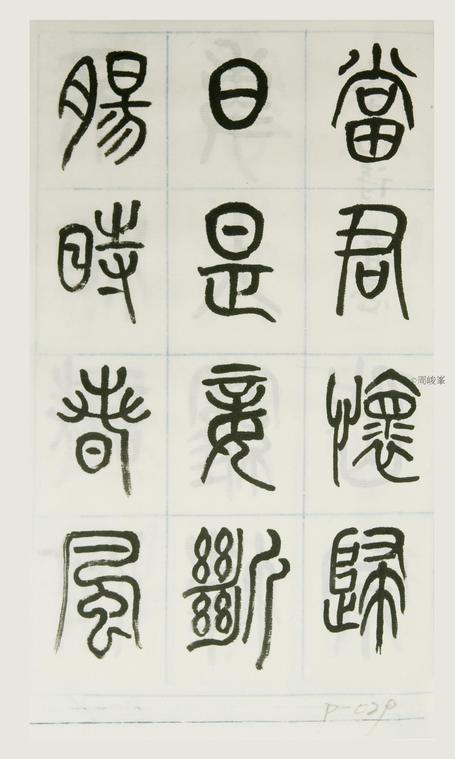 當君懷歸
日是妾斷
腸時春風
©周峻峯
P-029